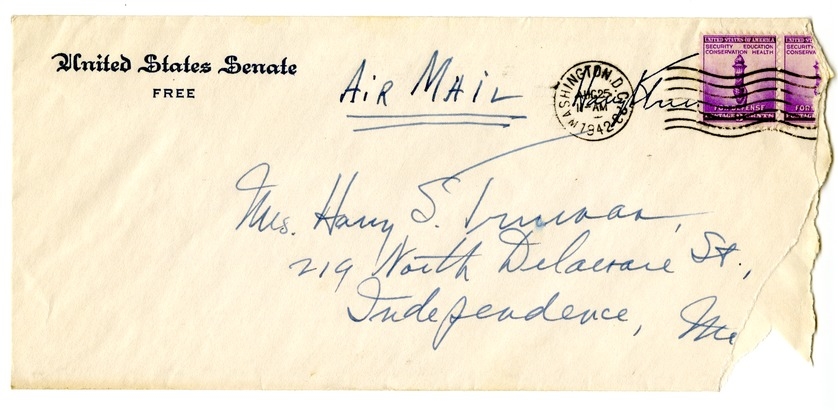 United States Senate
FREE
Air Mail
WASHINGTON, D.C.
AUG 25
11 AM
1942
UNITED STATES OF AMERICA
SECURITY EDUCATION
CONSERVATION HEALTH
FOR DEFENSE
UNITED STATES
SECURITY
CONSERVA
FOR
POSTAGE
Mrs. Harry S. Truman,
219 North Delaware St.,
Independence, Mo